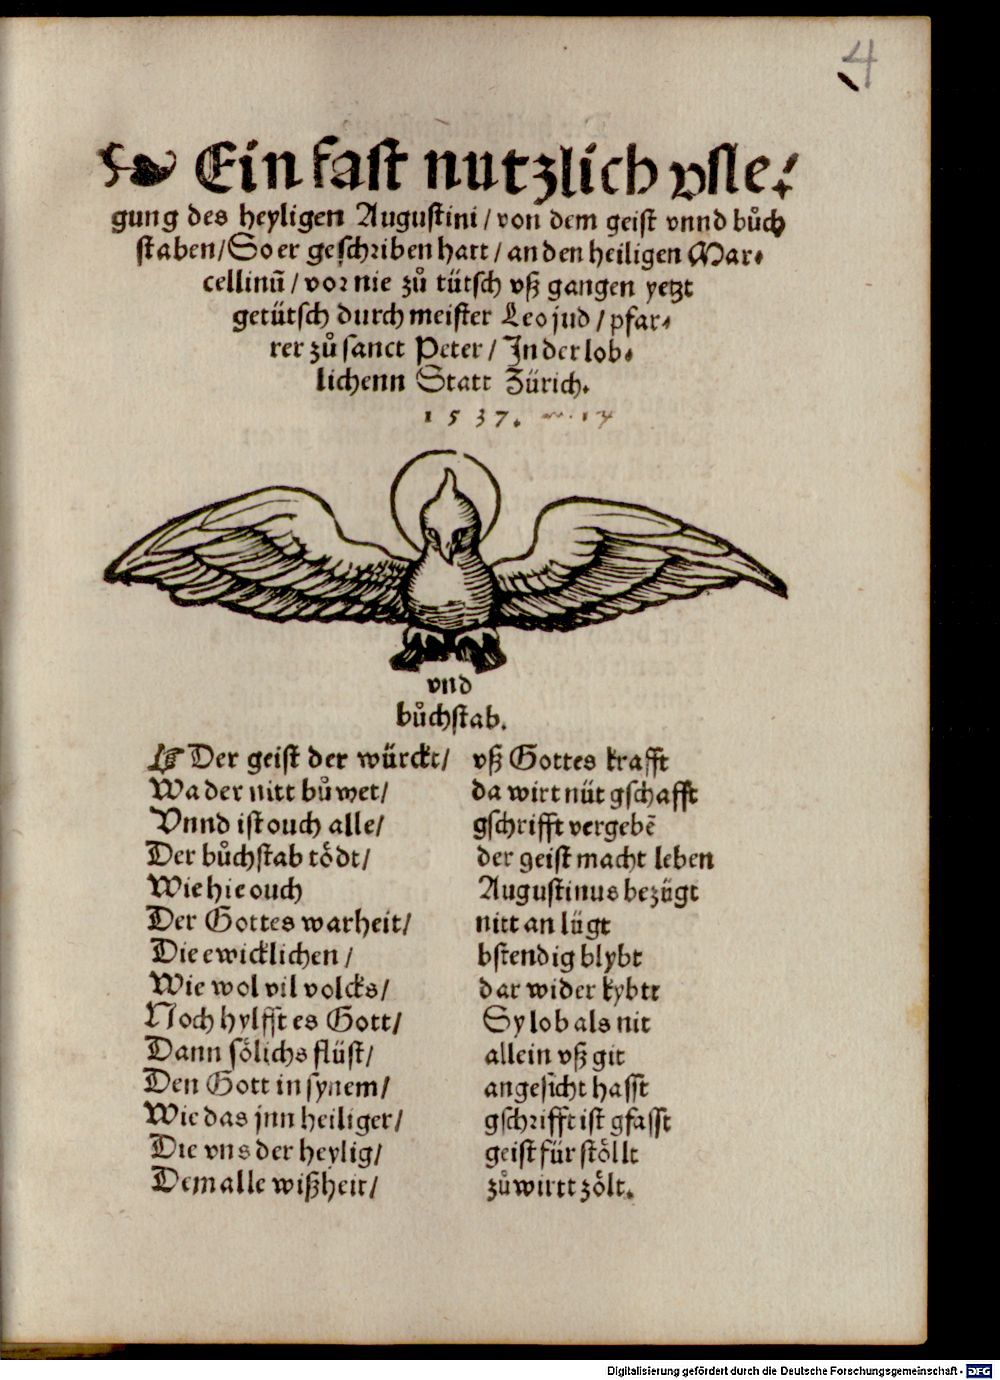 4
Ein fast nutzlich vsle⸗
gung des heyligen Augustini / von dem geist vnnd bůch
staben / So er geschriben hatt / an den heiligen Mar⸗
cellinū / vor nie zů tütsch vß gangen yetzt
getütsch durch meister Leo jud / pfar⸗
rer zů sanct Peter / In der lob⸗
lichenn Statt Zürich.
1537.
vnd
bůchstab.
☞ Der geist der würckt / vß Gottes krafft
Wa der nitt bůwet / da wirt nüt gschafft
Vnnd ist ouch alle / gschrifft vergebē
Der bůchstab tödt / der geist macht leben
Wie hie ouch Augustinus bezügt
Der Gottes warheit / nitt an lügt
Die ewicklichen / bstendig blybt
Wie wol vil volcks / dar wider kybtt
Noch hylfft es Gott / Sy lob als nit
Dann sölichs flüst / allein vß git
Den Gott in synem / angesicht hasst
Wie das jnn heiliger / gschrifft ist gfasst
Die vns der heylig / geist für stöllt
Dem alle wißheit / zů wirtt zölt.
Digitalisierung gefördert durch die Deutsche Forschungsgemeinschaft - DFG